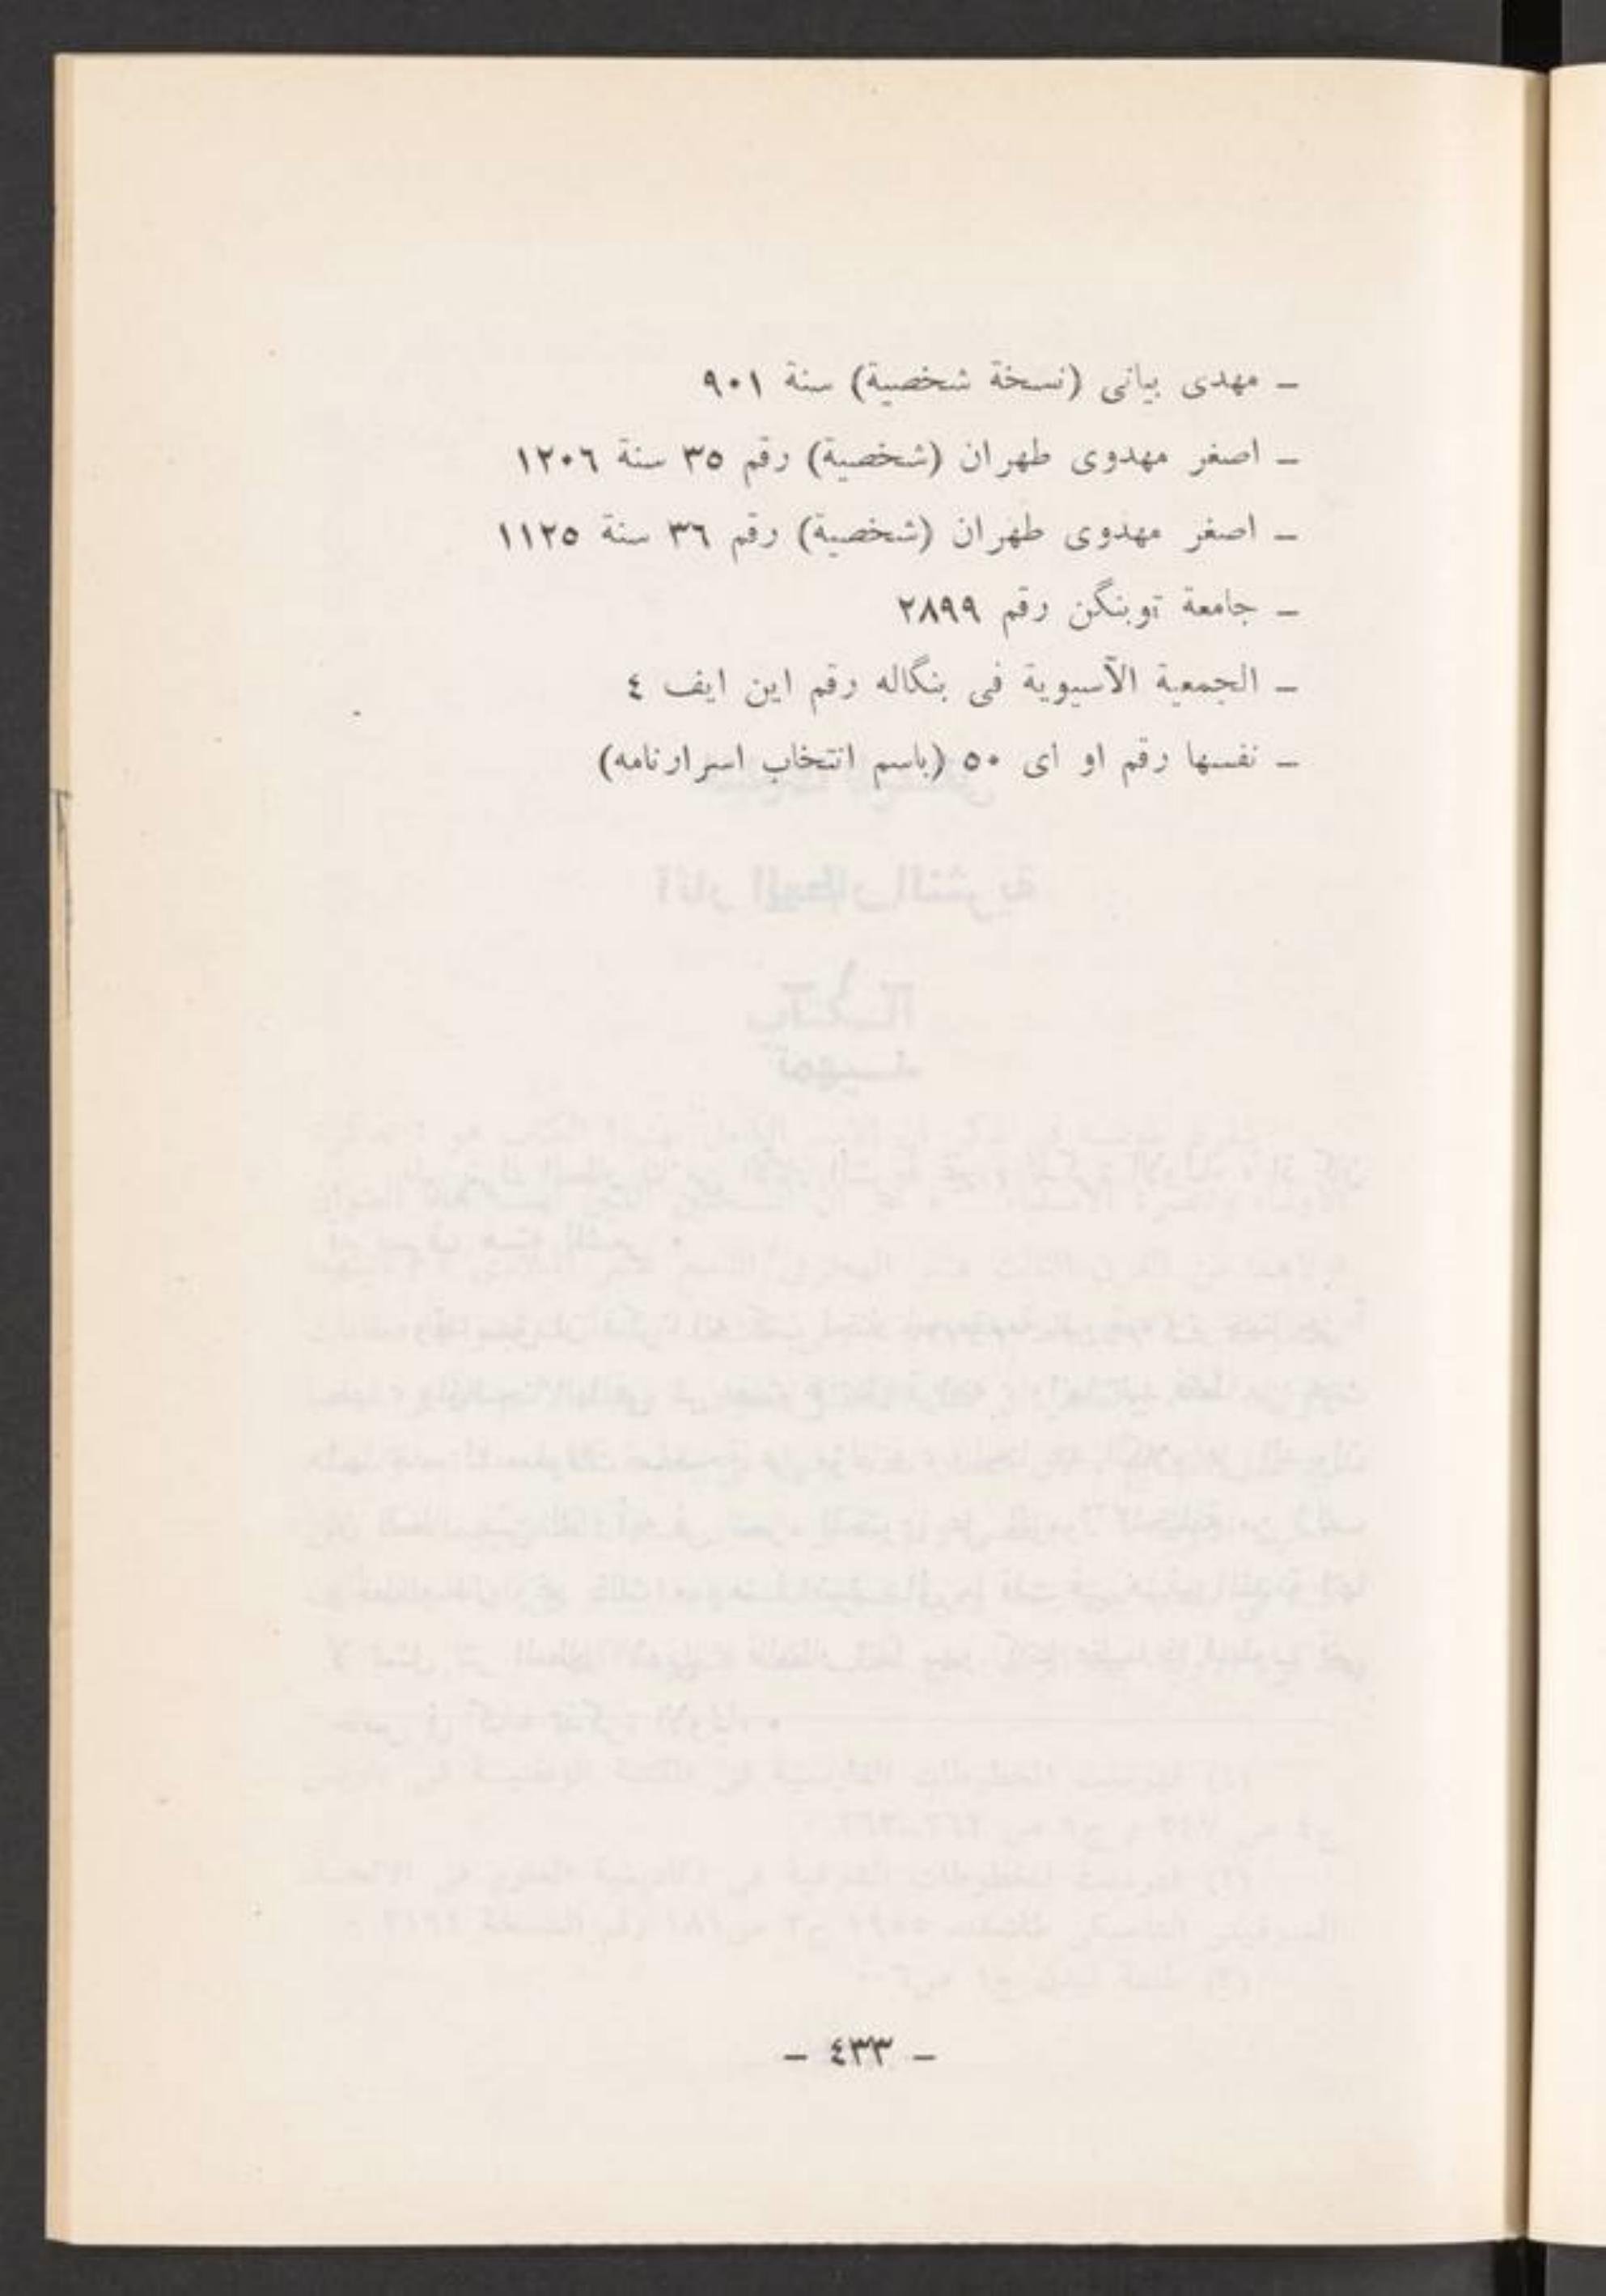 ـ مهدى بيانى (نسخة شخصية) سنة ٩٠١
ـ اصغر مهدوى طهران (شخصية) رقم ٣٥ سنة ١٢٠٦
ـ اصغر مهدوى طهران (شخصية) رقم ٣٦ سنة ١١٢٥
ـ جامعة توبنگن رقم ٢٨٩٩
ـ الجمعية الآسيوية فى بنگاله رقم اين ايف ٤
ـ نفسها رقم او اى ٥٠ (باسم انتخاب اسرارنامه)
ـ ٤٣٣ ـ